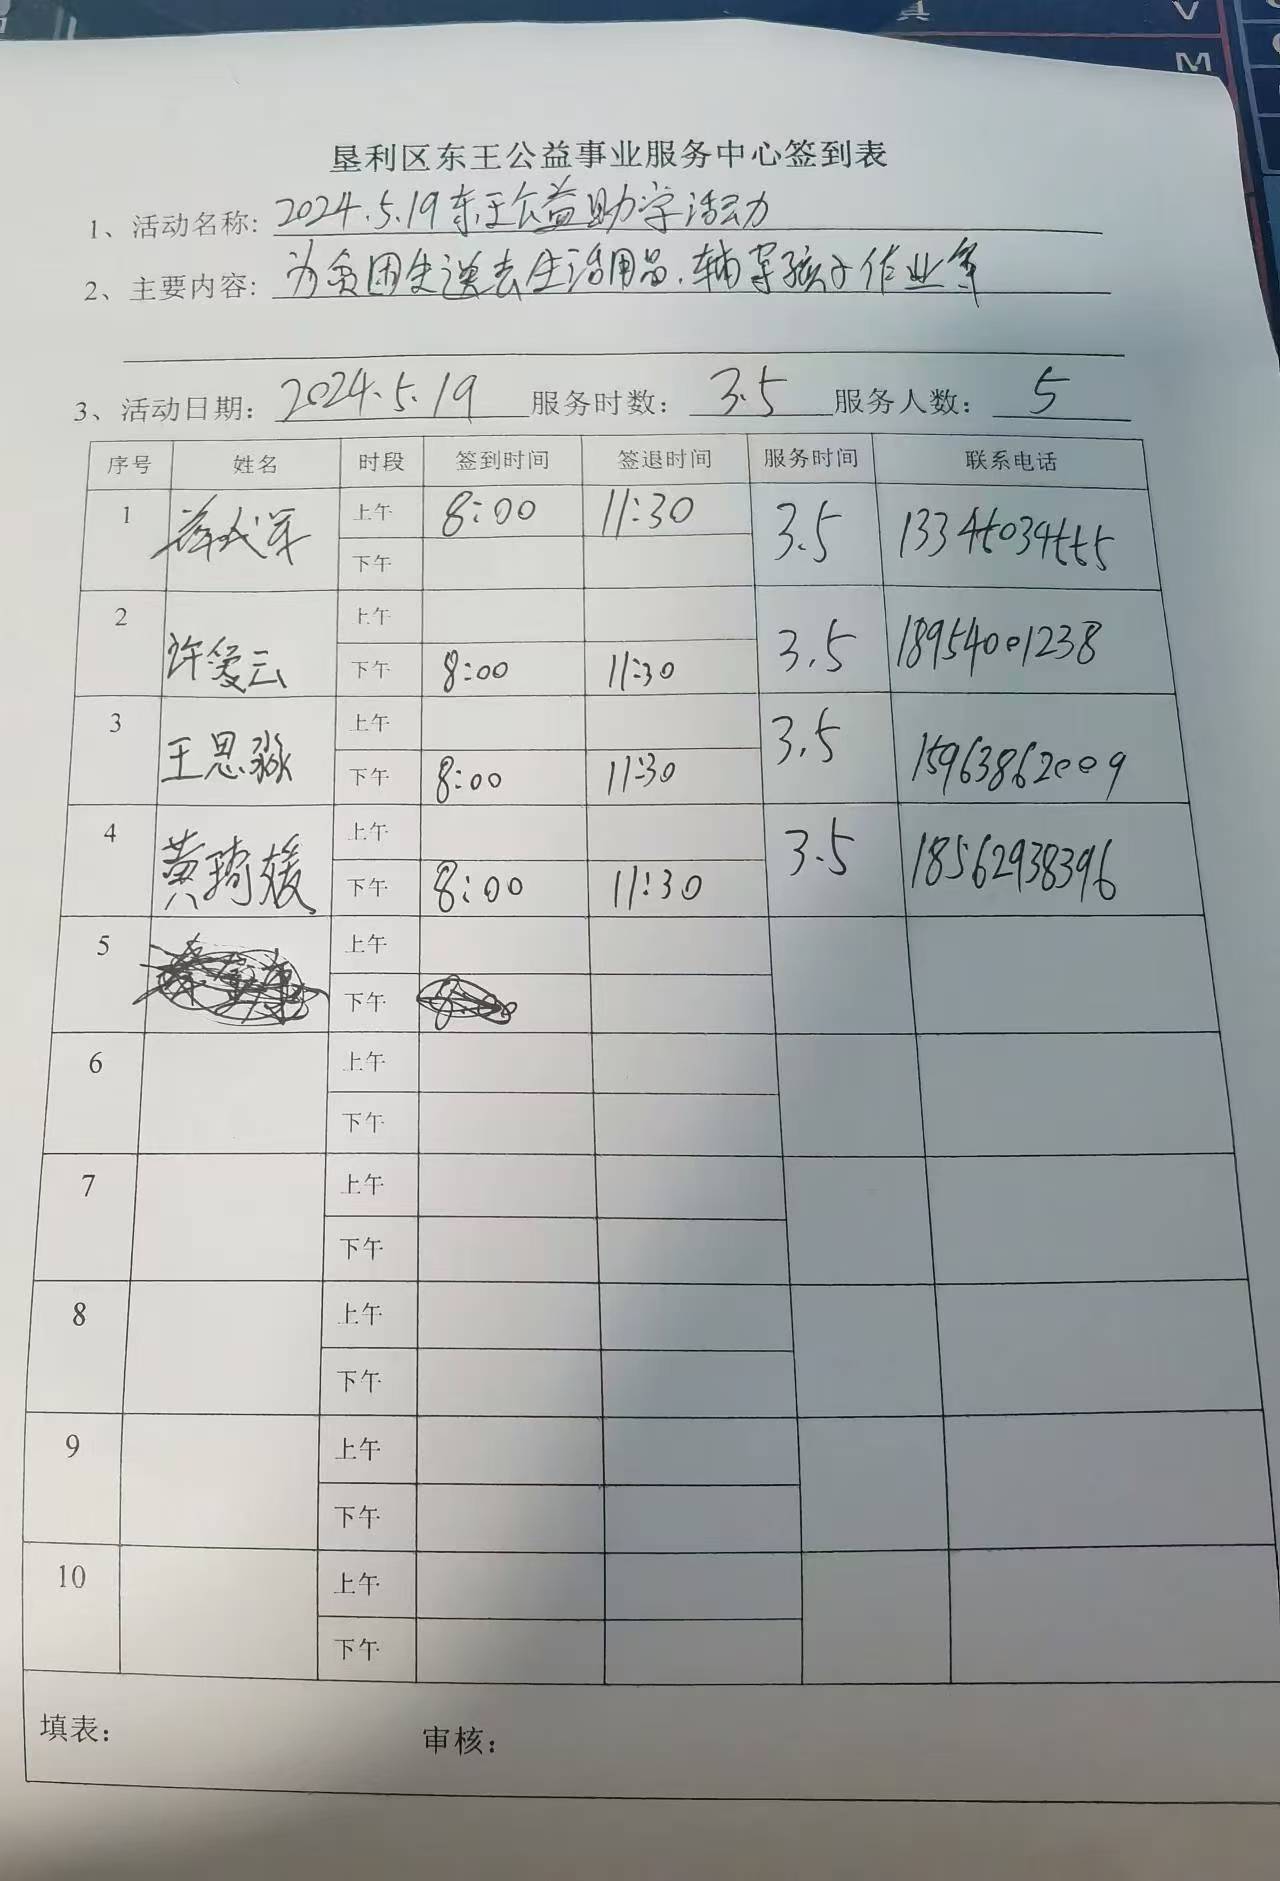 垦利区东王公益事业服务中心签到表
1、活动名称: 2024.5.19东王公益助学活动
2、主要内容: 为贫困生送去生活用品.辅导孩子作业等
3、活动日期: 2024.5.19 服务时数: 3.5 服务人数: 5
序号 姓名 时段 签到时间 签退时间 服务时间 联系电话
1 上午 8:00 11:30 3.5
下午
2 许爱云 上午 3.5 18954001238
下午 8:00 11:30
3 王思淼 上午 3.5 15963862009
下午 8:00 11:30
4 黄琦媛 上午 3.5 18562938396
下午 8:00 11:30
5 上午
下午
6 上午
下午
7 上午
下午
8 上午
下午
9 上午
下午
10 上午
下午
填表: 审核: